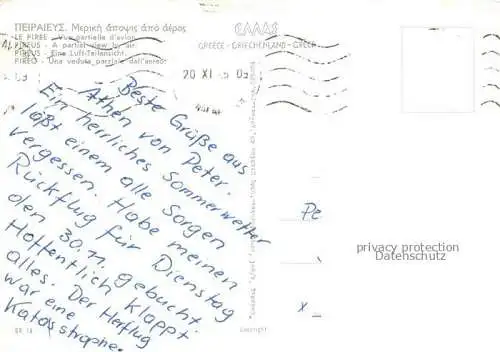 ΠΕΙΡΑΙΕΥΣ. Μερική άποψις ἀπό ἀέρος
LE PIREE - Vue partielle d'avion
PIREUS - A partial view by air.
PIREUS - Eine Luft-Teilansicht.
PIREO - Una veduta parziale dall'aereo.
ΕΛΛΑΣ
GREECE - GRIECHENLAND - GRECE
20 XI
Beste Grüße aus
Athen von Peter.
Ein herrliches Sommerwetter
läßt einem alle Sorgen
vergessen. Habe meinen
Rückflug für Dienstag
den 30.11. gebucht.
Hoffentlich klappt
alles. Der Herflug
war eine
Katasstrophe.
Pe
privacy protection
Datenschutz
x
Copyright